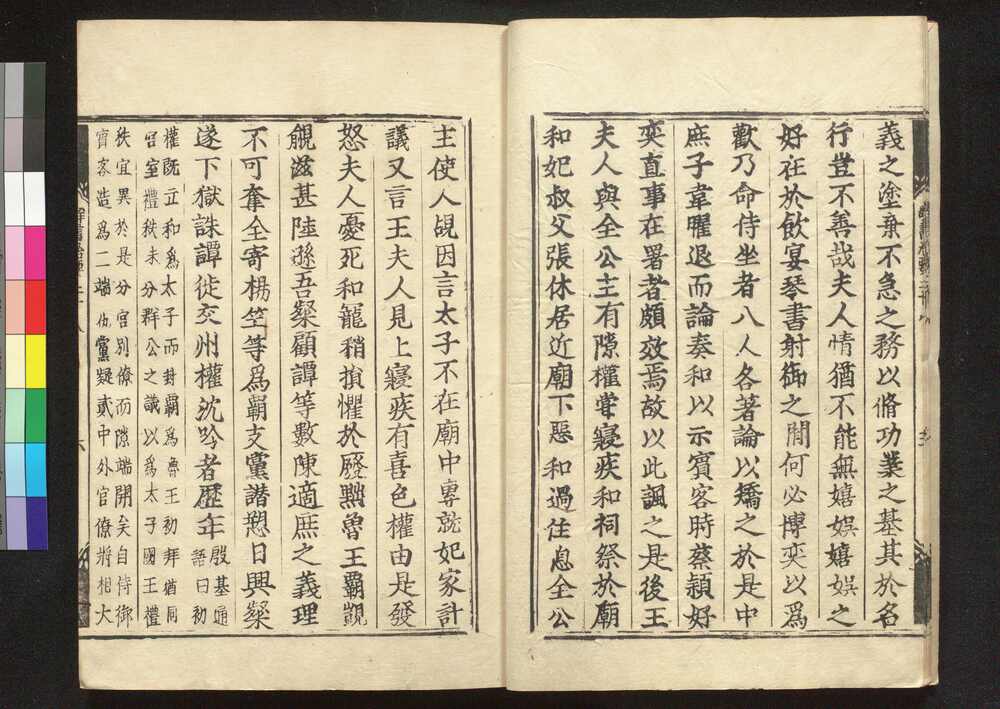 義之塗棄不急之務以脩功業之基其於名
行豈不善哉夫人情猶不能無嬉娯嬉娯之
好在於飲宴琴書射御之閒何必博奕以爲
歡乃命侍坐者八人各著論以矯之於是中
庶子韋曜退而論奏和以示賓客時蔡穎好
奕直事在署者頗效焉故以此諷之是後王
夫人與全公主有隙權嘗寢疾和祠祭於廟
和妃叔父張休居近廟下悪和過住息全公
主使人覘因言太子不在廟中專就妃家計
議又言王夫人見上寢疾有喜色權由是發
怒夫人憂死和寵稍損懼於廢黜魯王霸覬
覦滋甚陸遜吾粲顧譚等數陳適庶之義理
不可奪全寄楊竺等爲霸支黨譖愬日興粲
遂下獄誅譚徙交州權沈吟者歷年殷基通
語曰初
權既立和爲太子而封霸爲魯王初拜猶同
宮室禮秩未分群公之議以爲太子國王禮
秩宜異於是分宮別僚而隙端開矣自侍御
賓客造爲二端仇黨疑貳中外官僚將相大